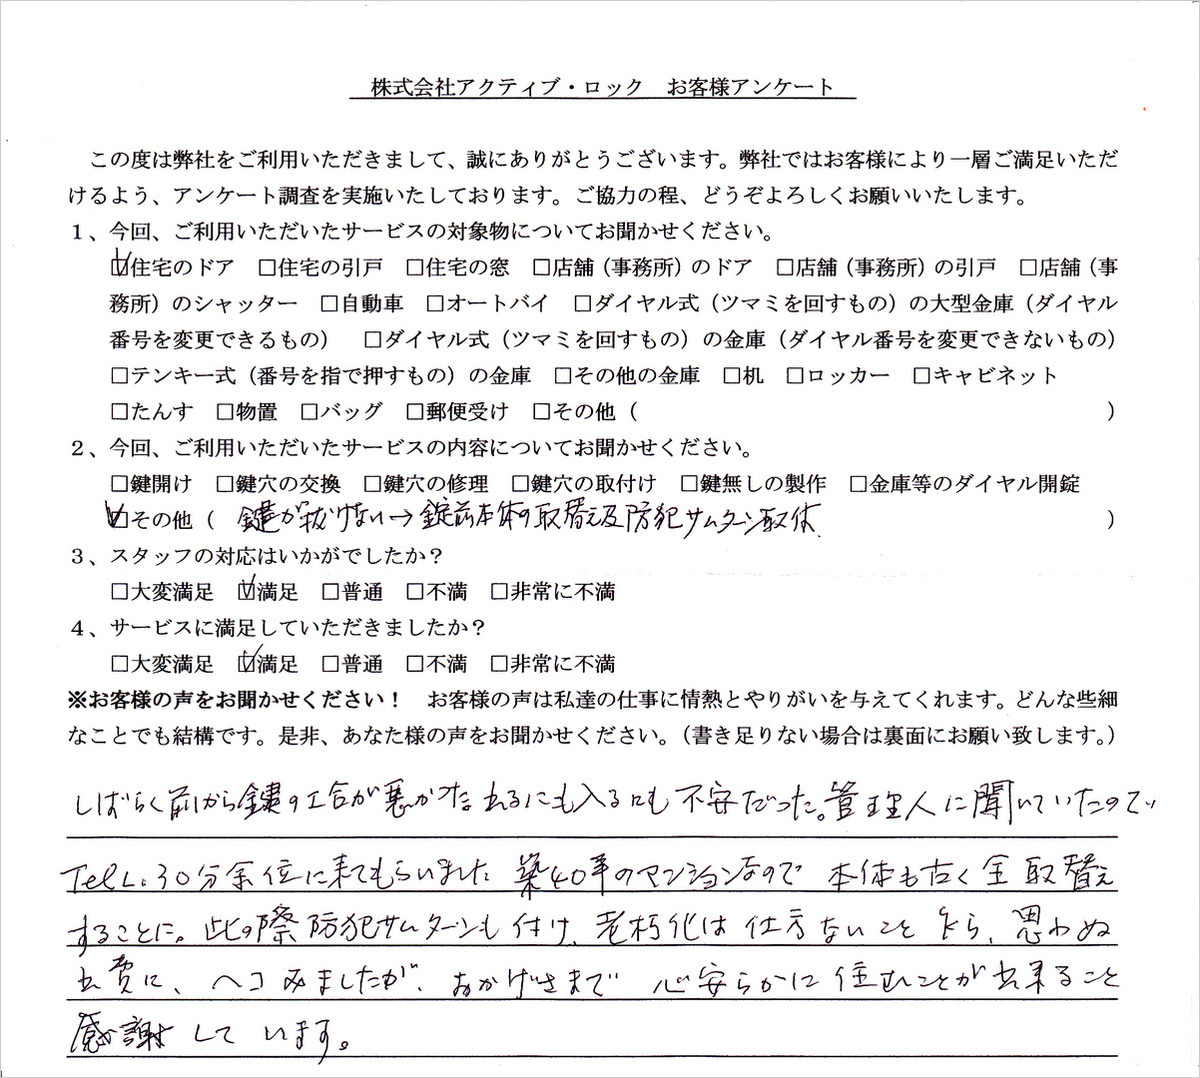 株式会社アクティブ・ロック　お客様アンケート
この度は弊社をご利用いただきまして、誠にありがとうございます。弊社ではお客様により一層ご満足いただ
けるよう、アンケート調査を実施いたしております。ご協力の程、どうぞよろしくお願いいたします。
１、今回、ご利用いただいたサービスの対象物についてお聞かせください。
☑住宅のドア　□住宅の引戸　□住宅の窓　□店舗（事務所）のドア　□店舗（事務所）の引戸　□店舗（事
務所）のシャッター　□自動車　□オートバイ　□ダイヤル式（ツマミを回すもの）の大型金庫（ダイヤル
番号を変更できるもの）　□ダイヤル式（ツマミを回すもの）の金庫（ダイヤル番号を変更できないもの）
□テンキー式（番号を指で押すもの）の金庫　□その他の金庫　□机　□ロッカー　□キャビネット
□たんす　□物置　□バッグ　□郵便受け　□その他（　　　　　　　　　　）
２、今回、ご利用いただいたサービスの内容についてお聞かせください。
□鍵開け　□鍵穴の交換　□鍵穴の修理　□鍵穴の取付け　□鍵無しの製作　□金庫等のダイヤル開錠
☑その他（　鍵が抜けない→錠前本体の取替え及防犯サムターン取付　）
３、スタッフの対応はいかがでしたか？
□大変満足　☑満足　□普通　□不満　□非常に不満
４、サービスに満足していただきましたか？
□大変満足　☑満足　□普通　□不満　□非常に不満
※お客様の声をお聞かせください！　お客様の声は私達の仕事に情熱とやりがいを与えてくれます。どんな些細
なことでも結構です。是非、あなた様の声をお聞かせください。（書き足りない場合は裏面にお願い致します。）
しばらく前から鍵の工合が悪かった 出るにも入るにも 不安だった。管理人に聞いていたので、
TELし。30分余位に来てもらいました 築40年のマンションなので 本体も古く全取替え
することに。此の際防犯サムターンも付け、老朽化は仕方ないこと 乍ら、思わぬ
出費に、ヘコみましたが、おかげさまで 心安らかに住むことが出来ること
感謝しています。